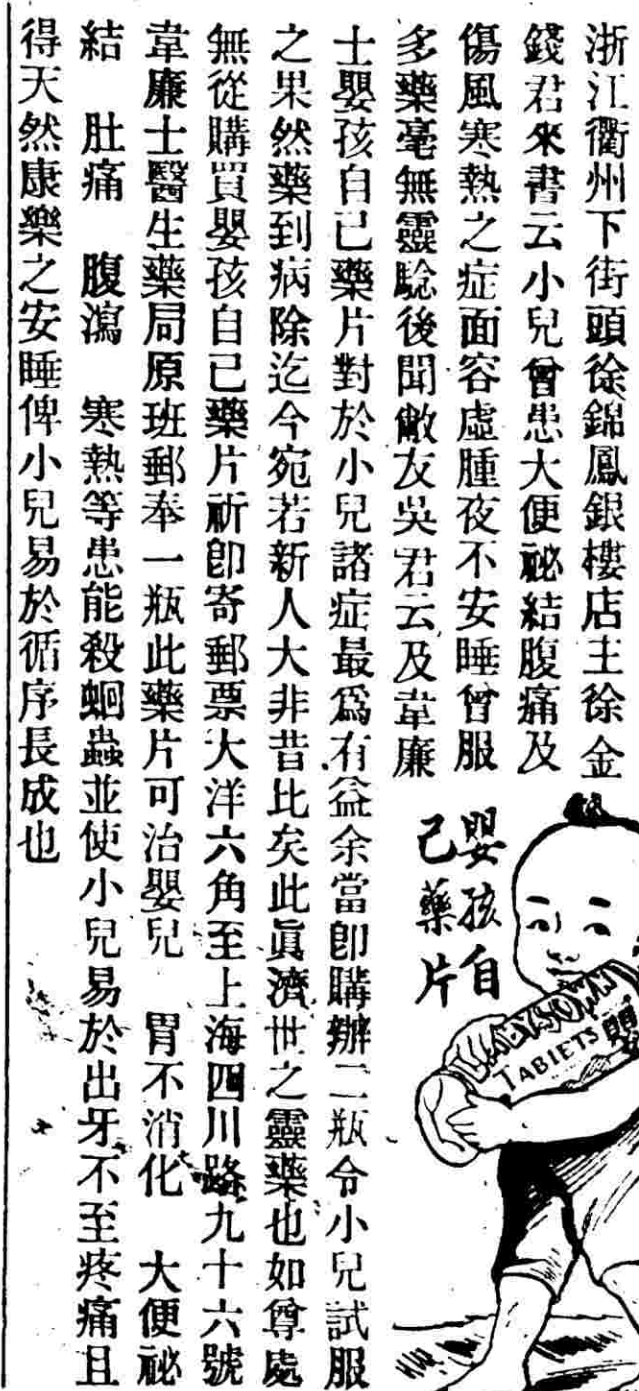 浙江衢州下街頭徐錦鳳銀樓店主徐金
錢君來書云小兒曾患大便祕結腹痛及
傷風寒熱之症面容虛腫夜不安睡曾服
多藥毫無靈驗後聞敝友吳君云及韋廉
士嬰孩自己藥片對於小兒諸症最爲有益余當卽購辦二瓶令小兒試服
之果然藥到病除迄今宛若新人大非昔比矣此眞濟世之靈藥也如尊處
無從購買嬰孩自己藥片祈卽寄郵票大洋六角至上海四川路九十六號
韋廉士醫生藥局原班郵奉一瓶此藥片可治嬰兒 胃不消化 大便祕
結 肚痛 腹瀉 寒熱等患能殺蛔蟲並使小兒易於出牙不至疼痛且
得天然康樂之安睡俾小兒易於循序長成也
嬰孩自
己藥片
TABLETS
嬰